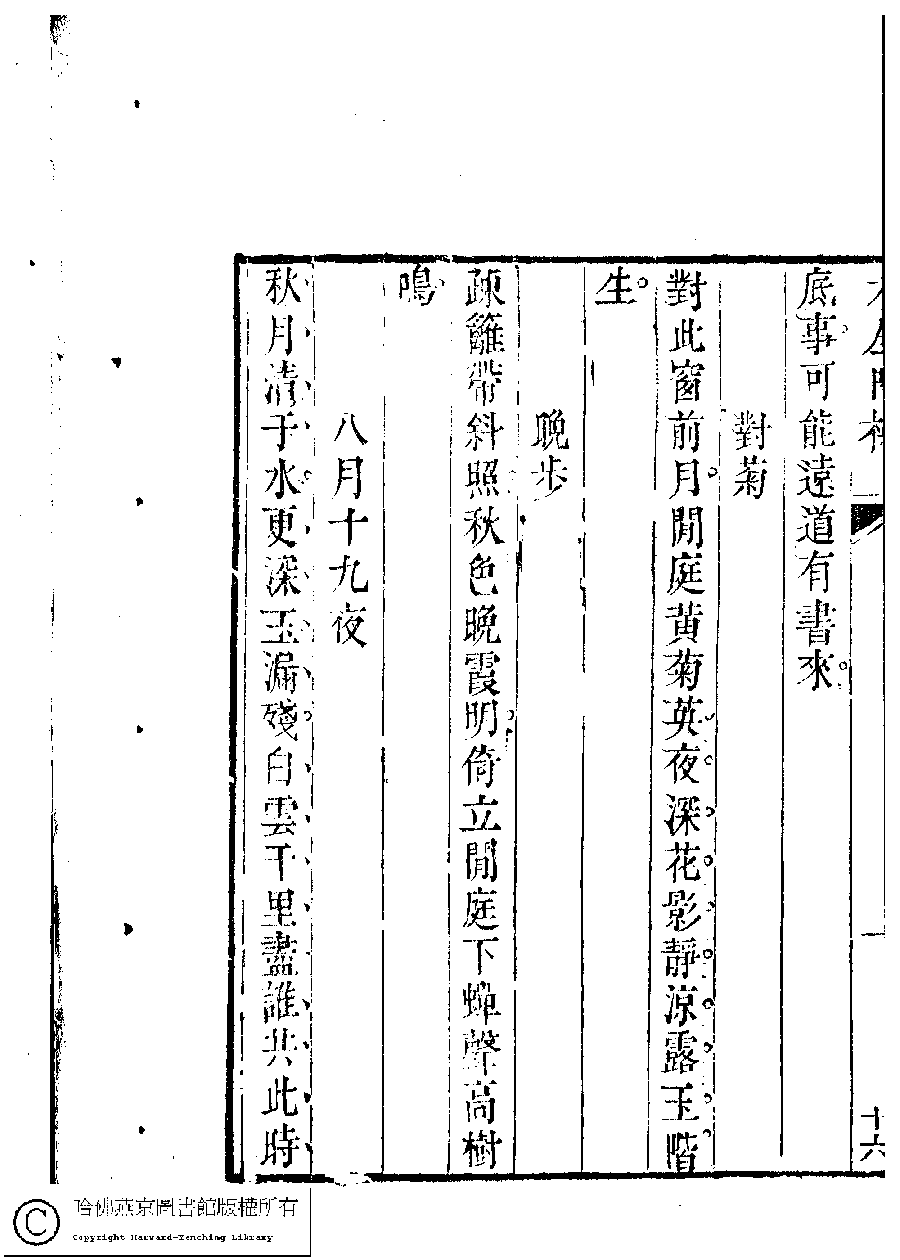 一
十六
底事可能遠道有書來
對菊
對此窗前月閒庭黄菊英夜深花影靜涼露玉階
生
晚步
疎籬帶斜照秋色晚霞明倚立閒庭下蟬聲高樹
鳴
八月十九夜
秋月清于水更深玉漏殘白雲千里盡誰共此時
哈佛燕京圖書館版權所有
Copyright Harvard-Yenching Library